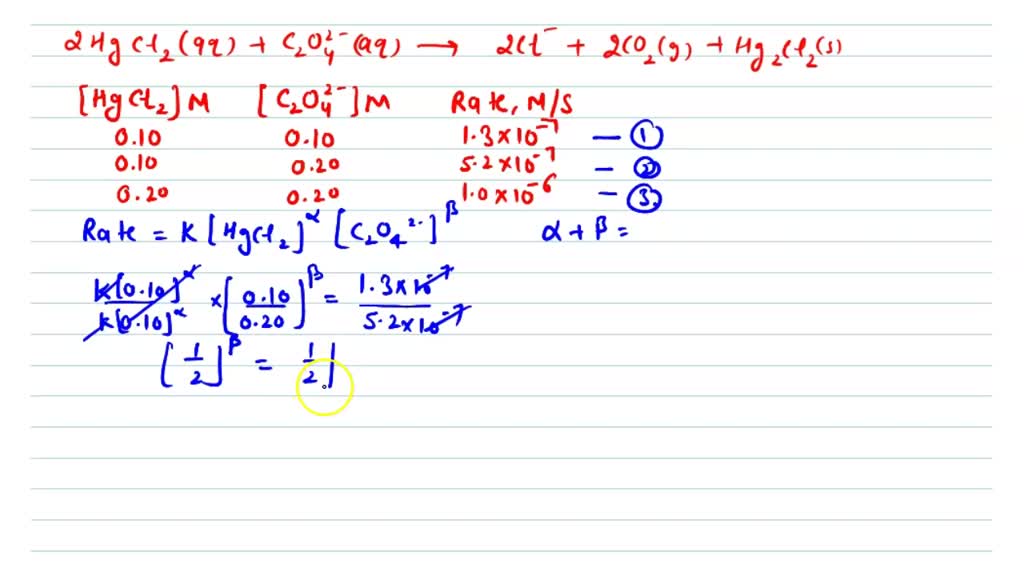 2HgCl₂(aq) + C₂O₄²⁻(aq) → 2Cl⁻ + 2CO₂(g) + Hg₂Cl₂(s)
[HgCl₂]M [C₂O₄²⁻]M Rate, M/S
0.10 0.10 1.3×10⁻⁷ — ①
0.10 0.20 5.2×10⁻⁷ — ②
0.20 0.20 1.0×10⁻⁶ — ③
Rate = K[HgCl₂]^α [C₂O₄²⁻]^β α + β =
k[0.10]^α / k[0.10]^α × [0.10/0.20]^β = 1.3×10⁻⁷ / 5.2×10⁻⁷
[1/2]^β = 1/2|